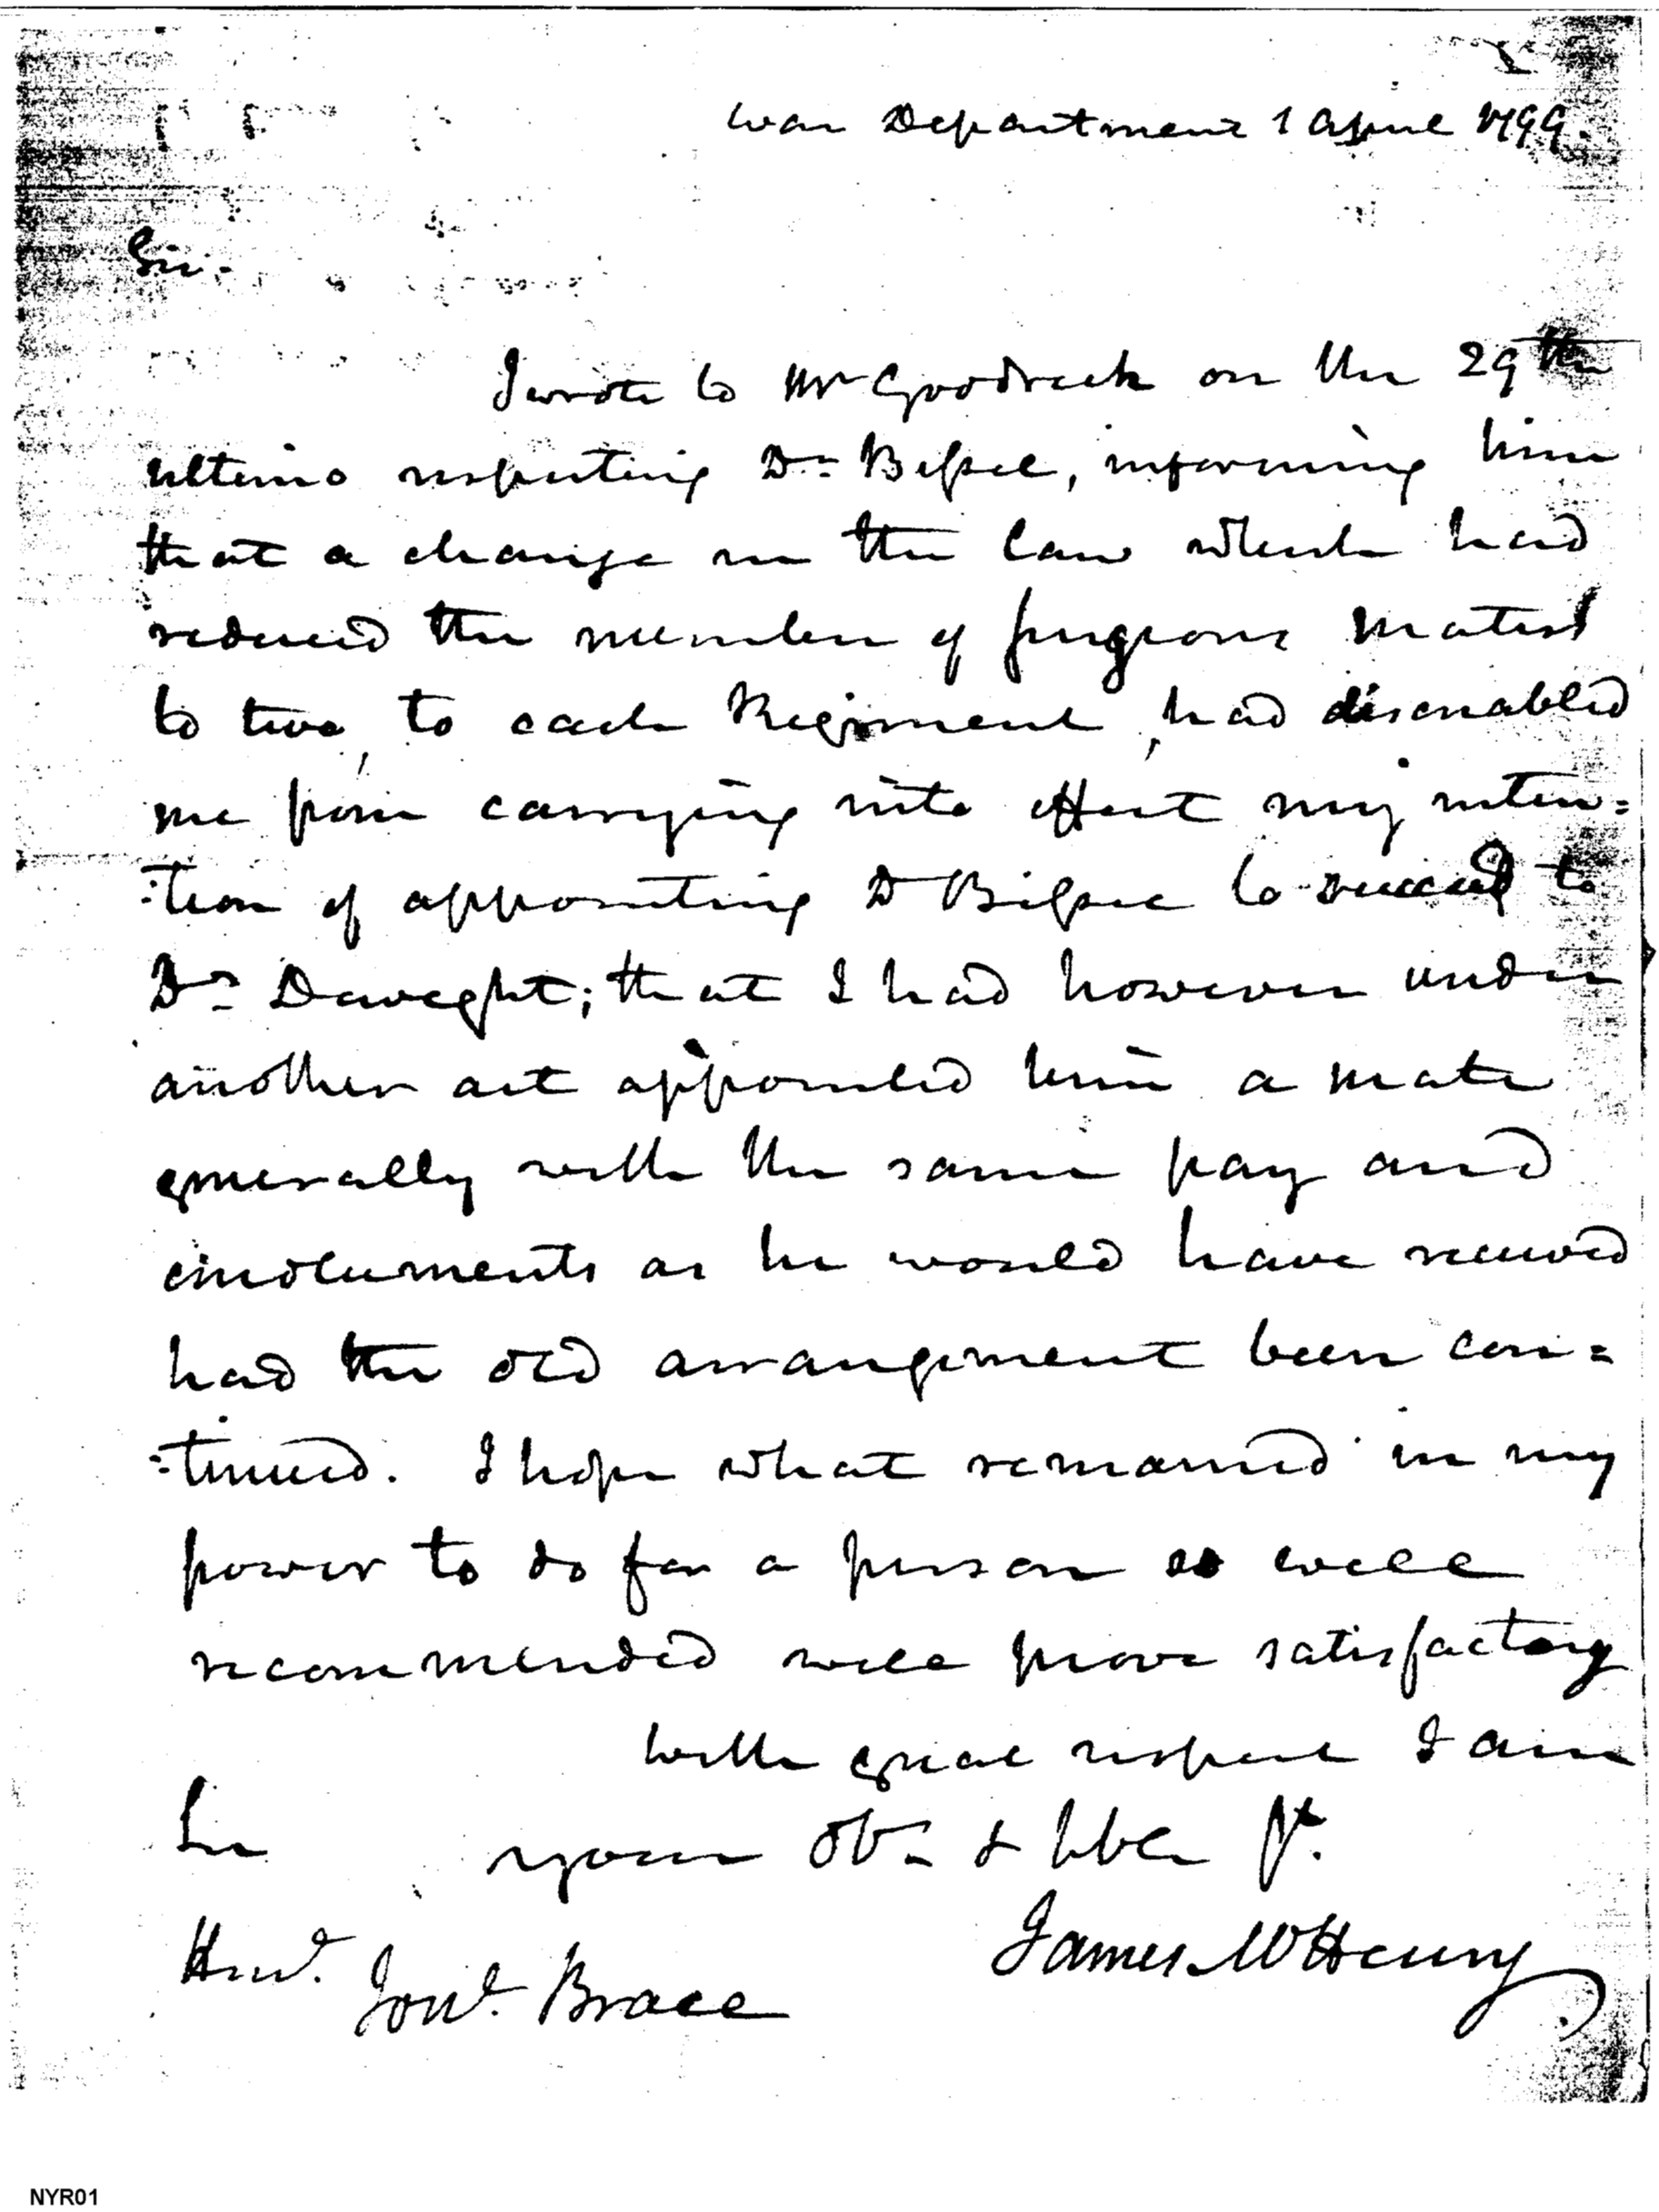 War Department 1 April 1799.
Sir.
I wrote to Mr Goodrich on the 29th
ultimo respecting Dr. Bissel, informing him
that a change in the law which had
reduced the number of surgeons mates
to two, to each Regiment, had disenabled
me from carrying into effect my inten=
=tion of appointing Dr Bissel to succeed to
Dr. Dwight; that I had however under
another act appointed him a mate
generally with the same pay and
emoluments as he would have received
had the old arrangement been con=
=tinued. I hope what remained in my
power to do for a person so well
recommended will prove satisfactory
With great respect I am
Sir your Ob. & hble St.
James McHenry
Honl. Jonn. Brace
NYR01